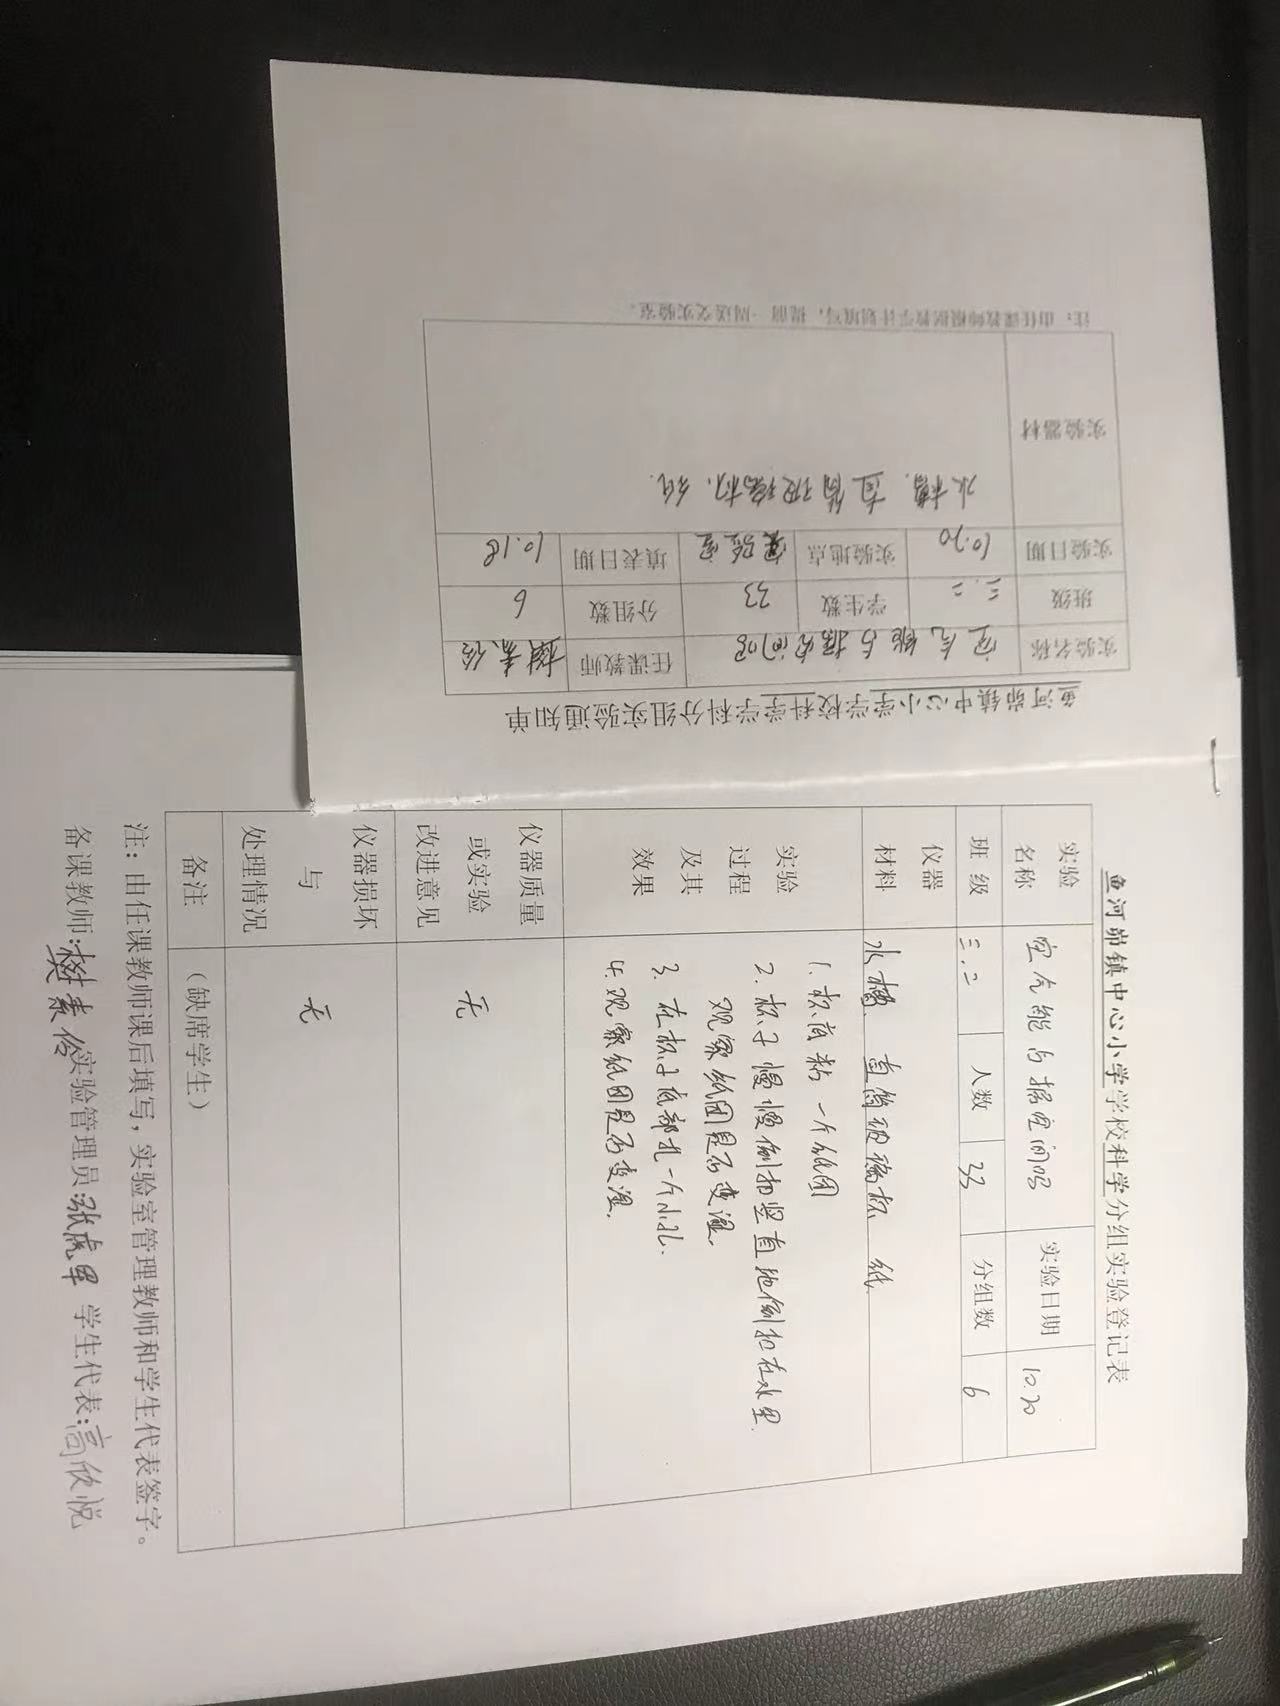 鱼河峁镇中心小学学校科学学科分组实验通知单
实验名称 空气能占据空间吗 任课教师
班级 三.二 学生数 33 分组数 6
实验日期 10.20 实验地点 实验室 填表日期 10.18
实验器材 水槽. 直筒玻璃杯、纸.
注：由任课教师根据教学计划填写，提前一周送交实验室。
鱼河峁镇中心小学学校科学分组实验登记表
实验名称 空气能占据空间吗 实验日期 10.20
班级 三.二 人数 33 分组数 6
仪器材料 水槽. 直筒玻璃杯 纸
实验过程及其效果
1. 杯底粘一个纸团
2. 杯子慢慢倒扣竖直地倒扣在水里.
观察纸团是否变湿.
3. 在杯子底部扎一个小孔.
4. 观察纸团是否变湿.
仪器质量或实验改进意见 无
仪器损坏与处理情况 无
备注 （缺席学生）
注：由任课教师课后填写，实验室管理教师和学生代表签字。
备课教师: 实验管理员:张虎军 学生代表:高欣悦